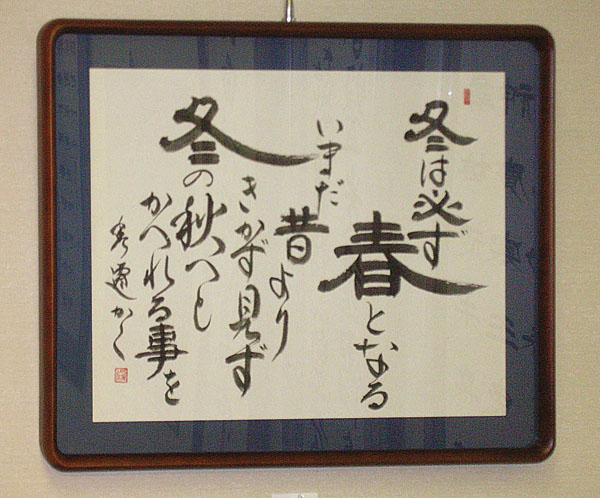 冬は必ず
春となる
いまだ昔より
きかず見ず
冬の秋へと
かへれる事を
かく